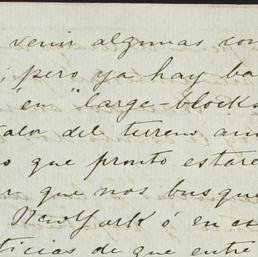 venir algunas con
; pero ya hay ba
en "large-blocks
talor del terreno an
o que pronto estare
r que nos busque
New York ó en es
ticias de que entre